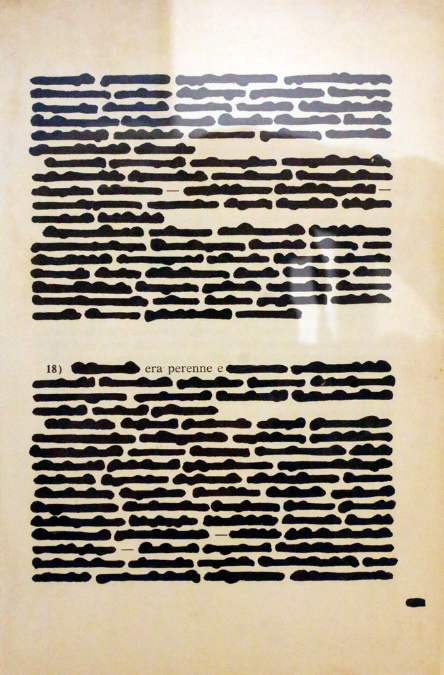 —
—
18) era perenne e
—
—